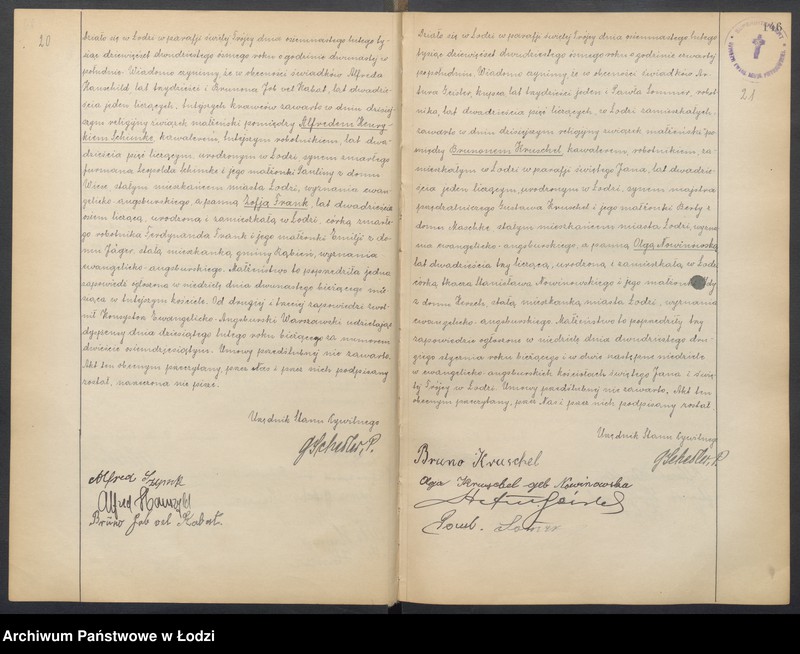 20
Działo się w Łodzi w parafji świętej Trójcy dnia osiemnastego lutego ty-
siąc dziewięćset dwudziestego ósmego roku o godzinie dwunastej w
południe. Wiadomo czynimy, że w obecności świadków Alfreda
lat trzydzieści i Brunona Job vel Kabat, lat dwadzie-
ścia jeden liczących, tutejszych krawców zawarto w dniu dzisiej-
szym religijny związek małżeński pomiędzy Alfredem Henry-
kiem Schimke, kawalerem, tutejszym robotnikiem, lat dwa-
dzieścia pięć liczącym, urodzonym w Łodzi synem zmarłego
furmana Leopolda Schimke i jego małżonki Pauliny z domu
stałym mieszkańcem miasta Łodzi, wyznania ewan-
gelicko-augsburskiego, a panną Zofją Frank, lat dwadzieścia
osiem liczącą, urodzoną i zamieszkałą w Łodzi, córką zmarłe-
go robotnika Ferdynanda Frank i jego małżonki Emilji z do-
mu Jäger, stałą mieszkanką gminy Rąbień, wyznania
ewangelicko-augsburskiego. Małżeństwo to poprzedziła jedna
zapowiedź ogłoszona w niedzielę dnia dwunastego bieżącego mie-
siąca w tutejszym kościele. Od drugiej i trzeciej zapowiedzi zwol-
nił Konsystorz Ewangelicko-Augsburski Warszawski udzielając
dyspensy dnia dziesiątego lutego roku bieżącego za numerem
dwieście osiemdziesiątym. Umowy przedślubnej nie zawarto.
Akt ten obecnym przeczytany, przez Nas i przez nich podpisany
został, narzeczona nie pisze.
Urzędnik Stanu Cywilnego
GSchedler, P.
Alfred
Alfred
Bruno Job vel Kabat.
146
21
Działo się w Łodzi w parafji świętej Trójcy dnia osiemnastego lutego
tysiąc dziewięćset dwudziestego ósmego roku o godzinie czwartej
popołudniu. Wiadomo czynimy, że w obecności świadków Ar-
tura Geisler, lat trzydzieści jeden i Pawła Sommer, robot-
nika, lat dwadzieścia pięć liczących, w Łodzi zamieszkałych,
zawarto w dniu dzisiejszym religijny związek małżeński po-
między Brunonem Kruschel kawalerem, robotnikiem, za-
mieszkałym w Łodzi w parafji świętego Jana, lat dwadzie-
ścia jeden liczącym, urodzonym w Łodzi, synem majstra
przędzalniczego Gustawa Kruschel i jego małżonki Berty z
domu Maschke, stałym mieszkańcem miasta Łodzi, wyzna-
nia ewangelicko-augsburskiego, a panną Olgą Nowinowską
lat dwadzieścia trzy liczącą, urodzoną i zamieszkałą w Łodzi
córką tkacza Stanisława Nowinowskiego i jego małżonki
z domu stałą mieszkanką miasta Łodzi, wyznania
ewangelicko-augsburskiego. Małżeństwo to poprzedziły trzy
zapowiedzie ogłoszone w niedzielę dnia dwudziestego dru-
giego stycznia roku bieżącego i w dwie następne niedziele
w ewangelicko-augsburskich kościołach świętego Jana i świę-
tej Trójcy w Łodzi. Umowy przedślubnej nie zawarto. Akt ten
obecnym przeczytany, przez Nas i przez nich podpisany został
Urzędnik Stanu Cywilnego
GSchedler, P.
Bruno Kruschel
Olga Kruschel geb Nowinowska
Artur
Archiwum Państwowe w Łodzi